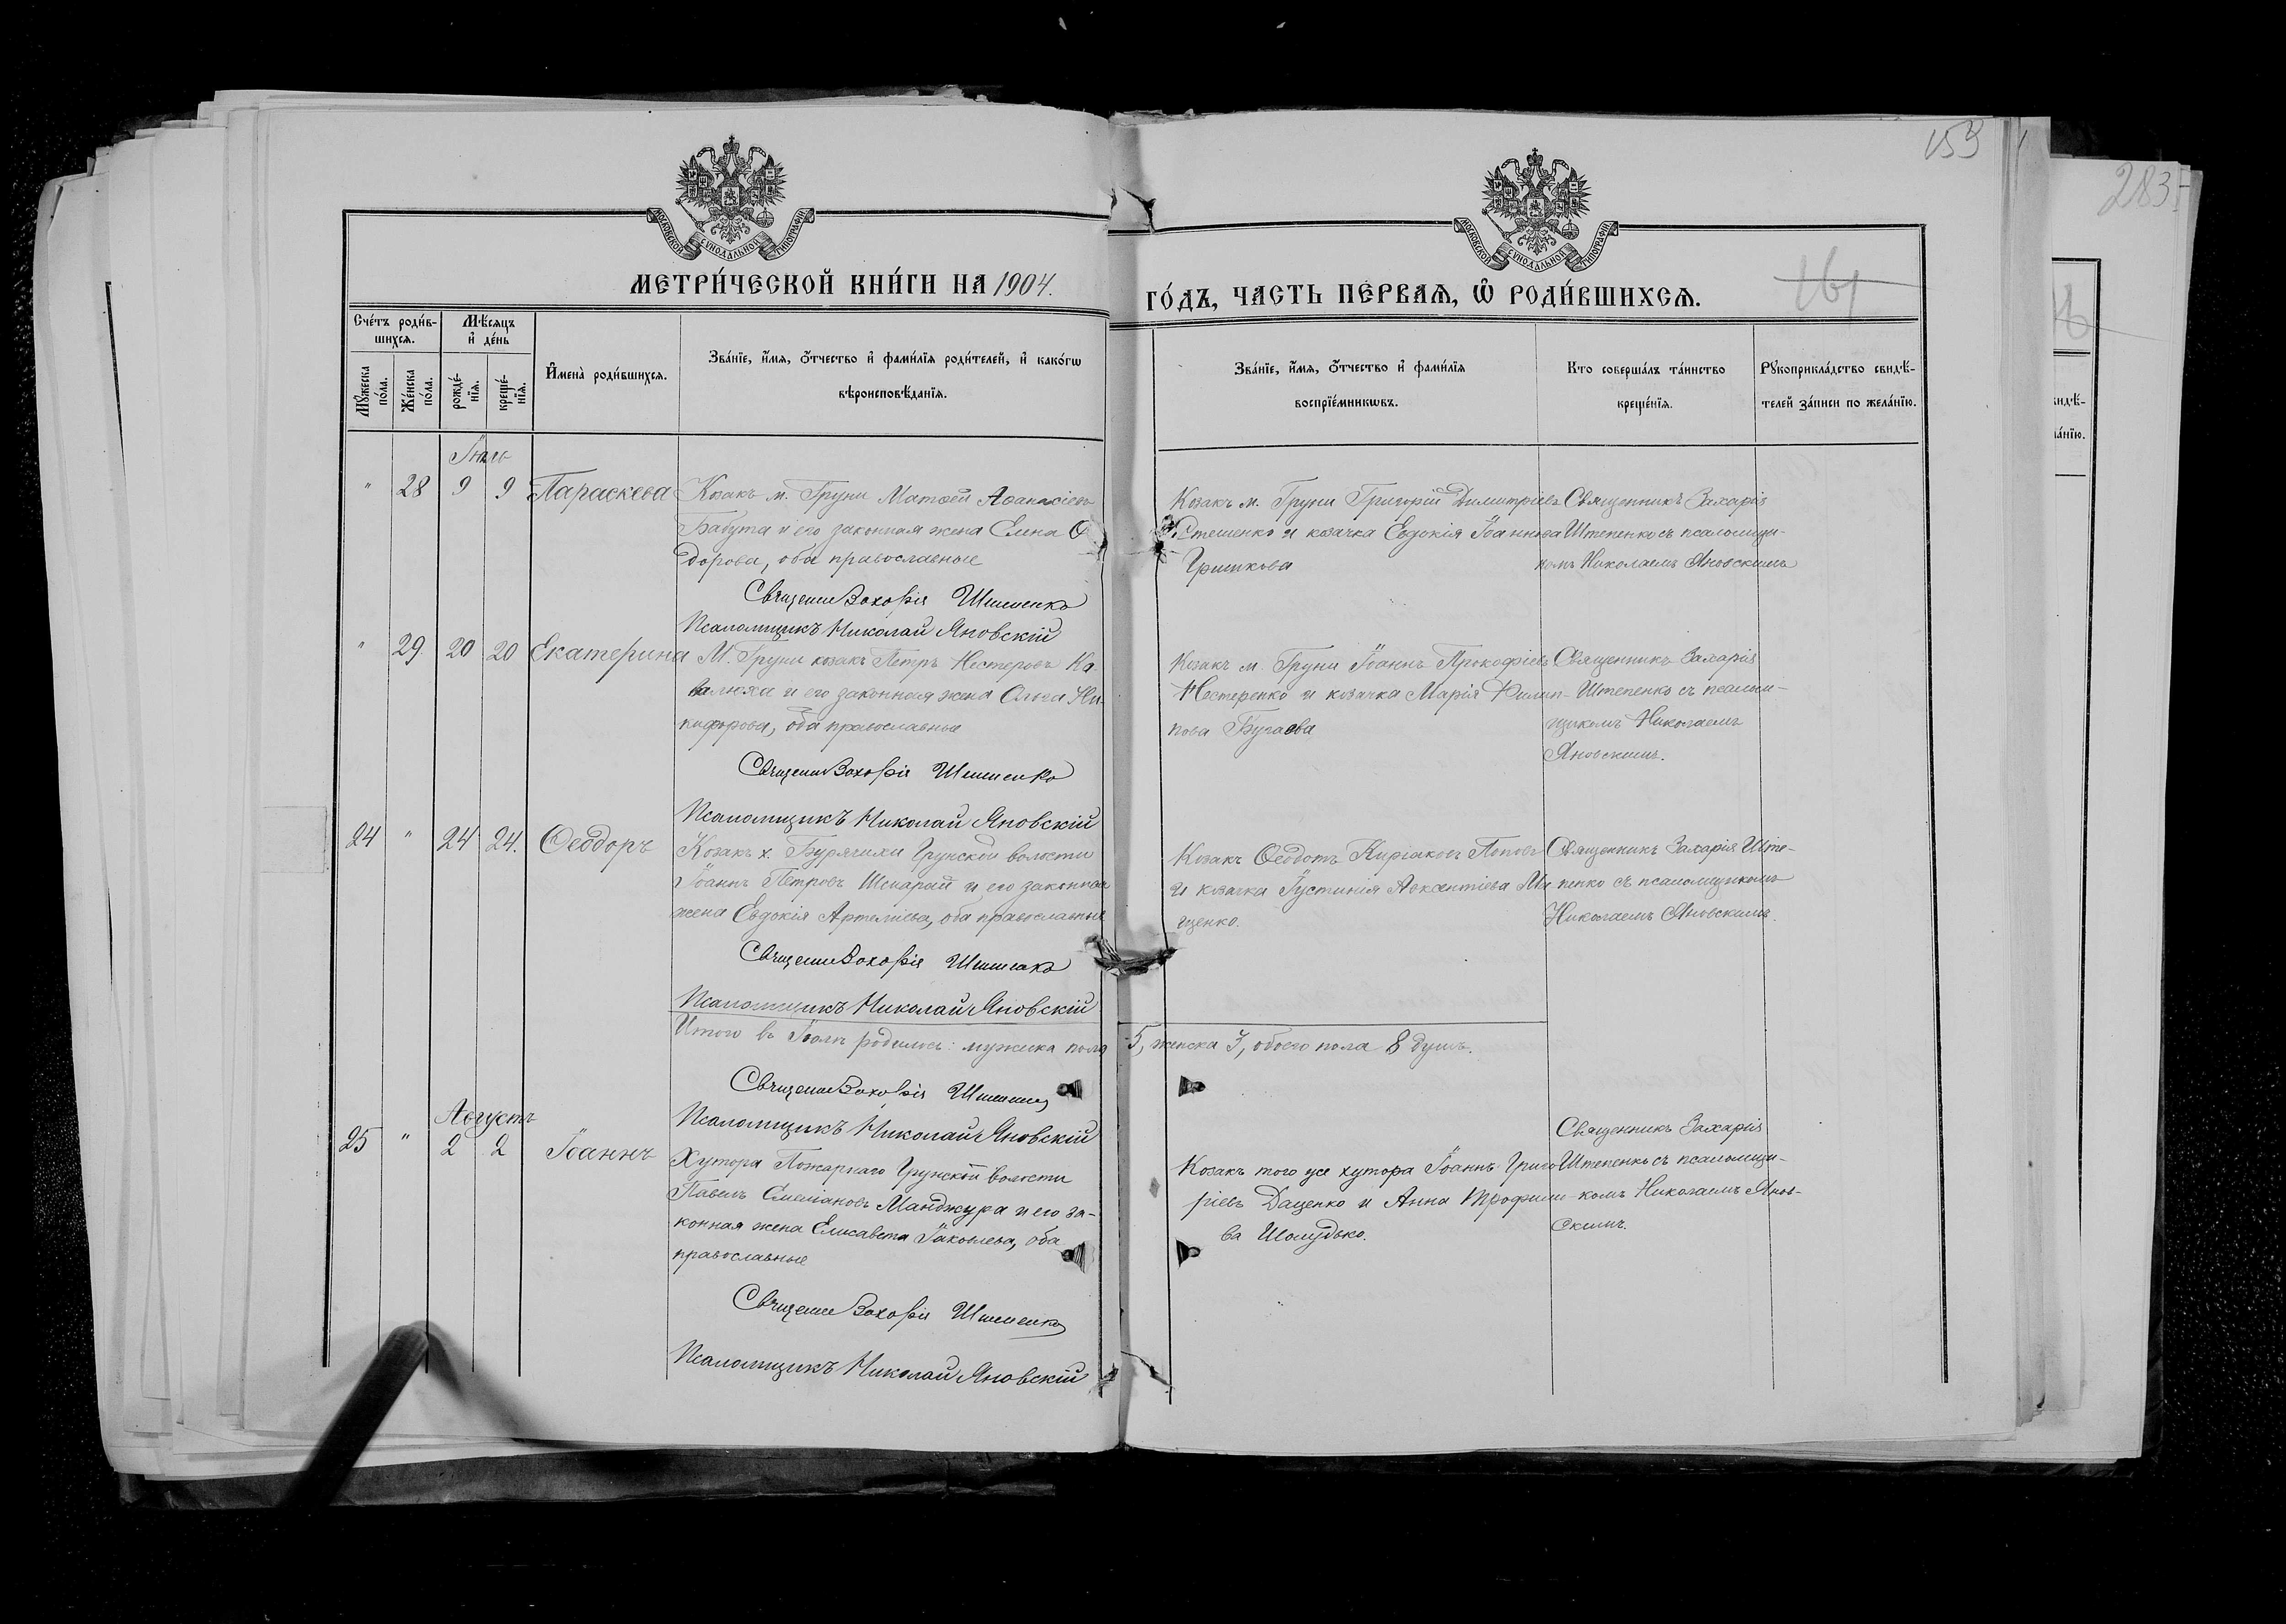 153
283
МОСКОВСКОЙ СѴНОДАЛЬНОЙ ТИПОГРАФІИ
МОСКОВСКОЙ СѴНОДАЛЬНОЙ ТИПОГРАФІИ
МЕТРИ́ЧЕСКОЙ КНИ́ГИ НА 1904.
ГО́ДЪ, ЧАСТЬ ПЕ́РВАѦ, Ѡ҆ РОДИ́ВШИХСѦ.
161
Сче́тъ роди́в-
шихсѧ.
Мѣ́сѧцъ
и҆ де́нь
Мꙋ́жеска по́ла.
Же́нска по́ла.
рожде́-нїѧ.
креще́-нїѧ.
И҆мена̀ роди́вшихсѧ.
Зва́нїе, и҆́мѧ, ѻ҆́тчество и҆ фами́лїѧ роди́телей, и҆ како́гѡ
вѣроисповѣ́данїѧ.
Зва́нїе, и҆́мѧ, ѻ҆́тчество и҆ фами́лїѧ
воспрїе́мникѡвъ.
Кто соверша́лъ та́инство
креще́нїѧ.
Рꙋкоприкла́дство свидѣ́-
телей за́писи по жела́нїю.
Іюль
" 28 9 9 Параскева
Козакъ м. Груни Матѳей Аѳанасіевъ
Бабута и его законная жена Елена Ѳ
дорова, оба православные
Священн Захарія Штепенко
Псаломщикъ Николай Яновскій
Козакъ м. Груни Григорій Димитріевъ
Стешенко и козачка Евдокія Іоаннова
Гришкова
Священникъ Захарія
Штепенко съ псаломщи-
комъ Николаемъ Яновскимъ
" 29 20 20 Екатерина
М. Груни козакъ Петръ Нестеровъ Ко-
валюха и его законная жена Ольга Ни-
кифорова, оба православные
Священн Захарія Штепенко
Псаломщикъ Николай Яновскій
Козакъ м. Груни Іоаннъ Прокофіевъ
Нестеренко и козачка Марія Филип-
пова Бугаева
Священникъ Захарія
Штепенко съ псалом-
щикомъ Николаемъ
Яновскимъ.
24 " 24 24. Ѳеодоръ
Козакъ х. Бурячихи Грунской волости
Іоаннъ Петровъ Шкарай и его законная
жена Евдокія Артеміева, оба православные
Священн Захарія Штепенко
Псаломщикъ Николай Яновскій
Козакъ Ѳеодотъ Киріаковъ Поповъ
и козачка Іустинія Авксентіева Ми
щенко.
Священникъ Захарія Ште-
пенко съ псаломщикомъ
Николаемъ Яновскимъ.
Итого въ Іюлѣ родилось: мужска пола 5, женска 3, обоего пола 8 душъ.
Священн Захарія Штепенко
Псаломщикъ Николай Яновскій
Августъ
25 " 2 2 Іоаннъ
Хутора Пожарнаго Грунской волости
Павелъ Емеліановъ Манджура и его за-
конная жена Елисавета Іаковлева, оба
православные
Священн Захарія Штепенко
Псаломщикъ Николай Яновскій
Козакъ того же хутора Іоаннъ Григо
ріевъ Даценко и Анна Трофимо-
ва Шолудько.
Священникъ Захарія
Штепенко съ псаломщи-
комъ Николаемъ Янов-
скимъ.